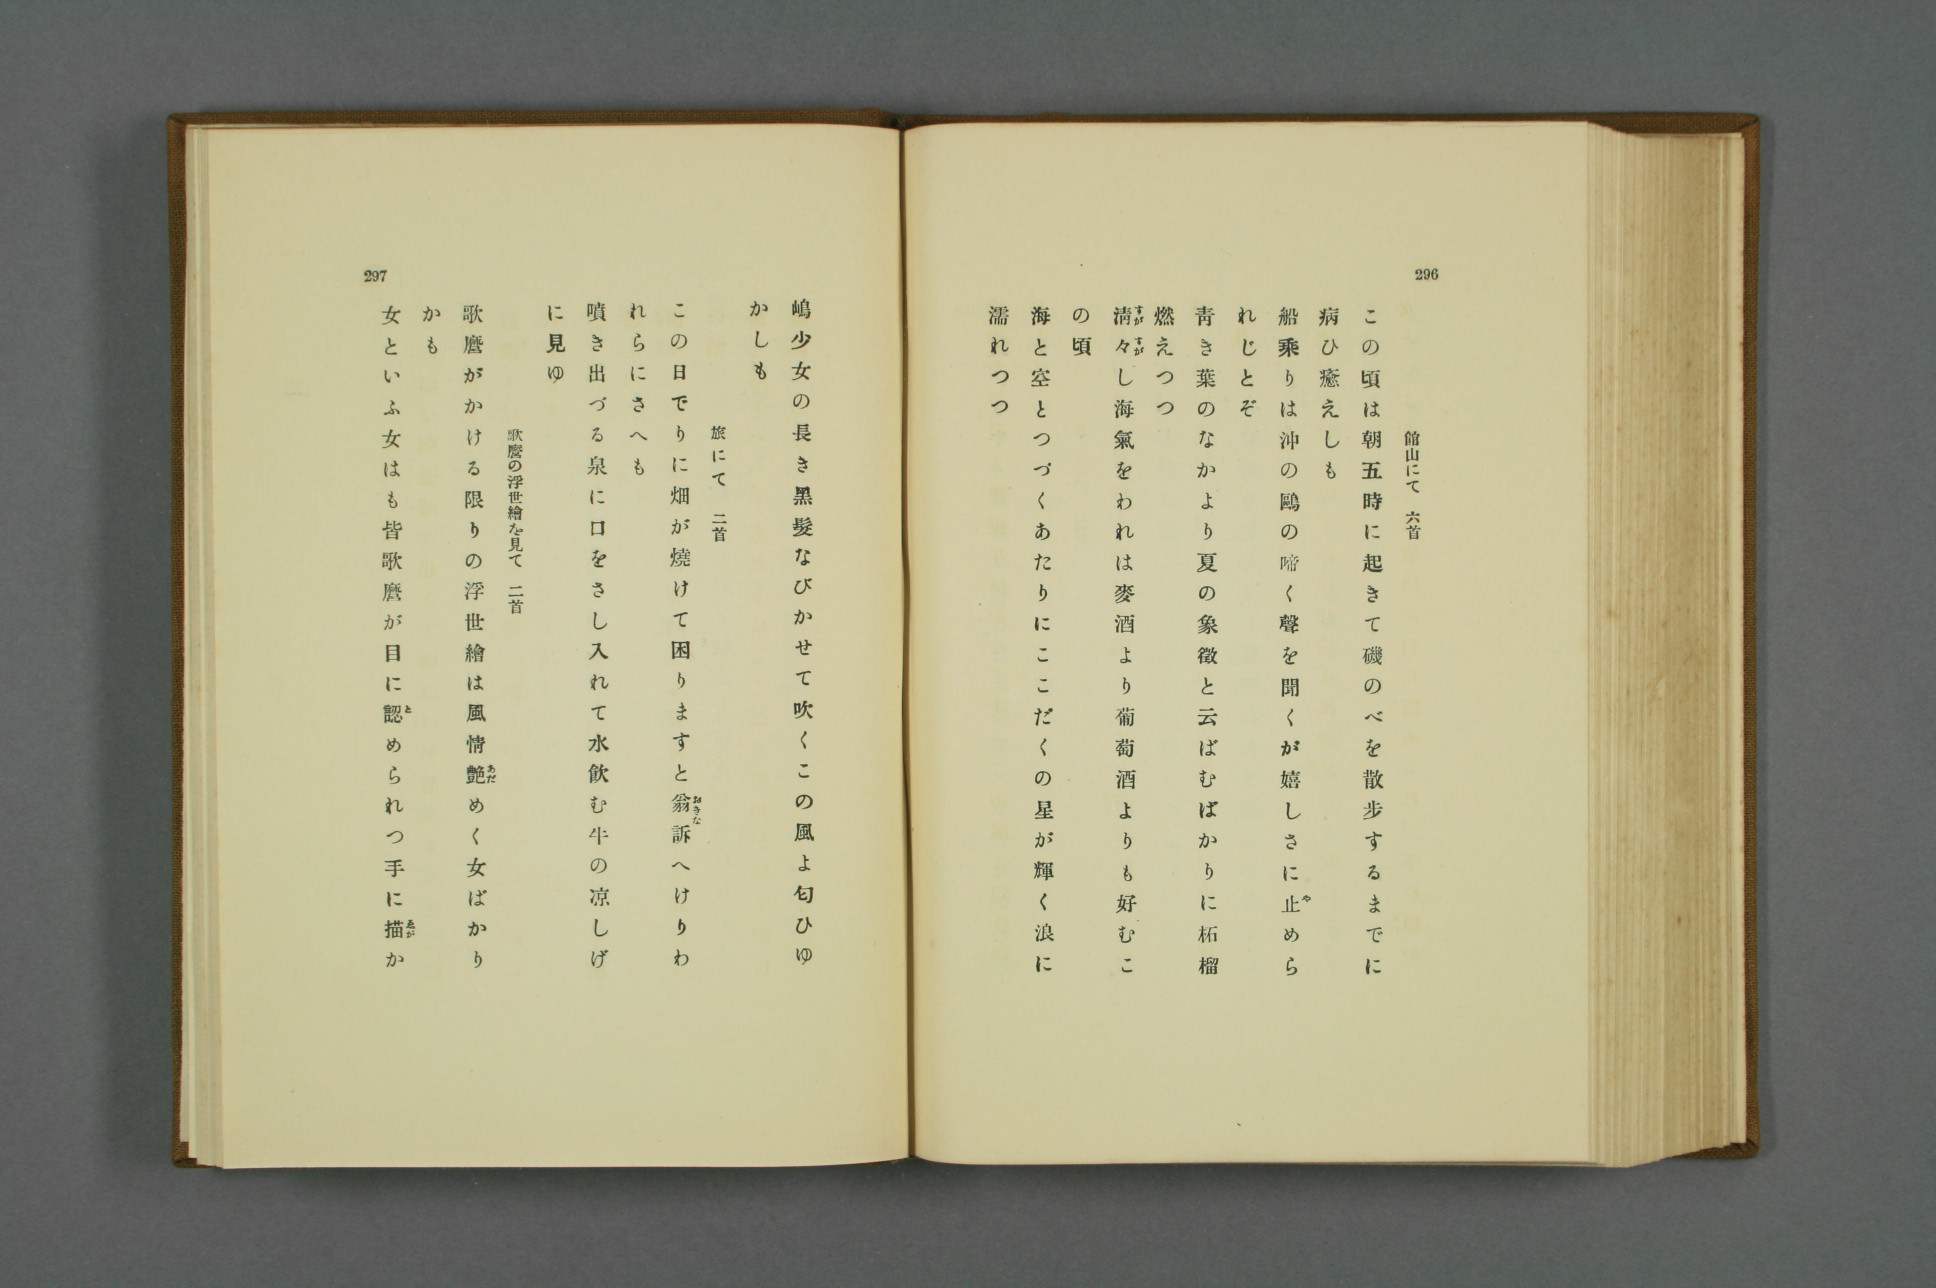 296
館山にて　六首
この頃は朝五時に起きて磯のべを散歩するまでに
病ひ癒えしも
船乘りは沖の鷗の啼く聲を聞くが嬉しさに止めら
れじとぞ
靑き葉のなかより夏の象徵と云ばむばかりに柘榴
燃えつつ
淸々し海氣をわれは麥酒より葡萄酒よりも好むこ
の頃
海と空とつづくあたりにここだくの星が輝く浪に
濡れつつ
297
嶋少女の長き黑髮なびかせて吹くこの風よ匂ひゆ
かしも
旅にて　二首
この日でりに畑が燒けて困りますと翁訴へけりわ
れらにさへも
噴き出づる泉に口をさし入れて水飮む牛の凉しげ
に見ゆ
歌麿の浮世繪を見て　二首
歌麿がかける限りの浮世繪は風情艶めく女ばかり
かも
女といふ女はも皆歌麿が目に認められつ手に描か